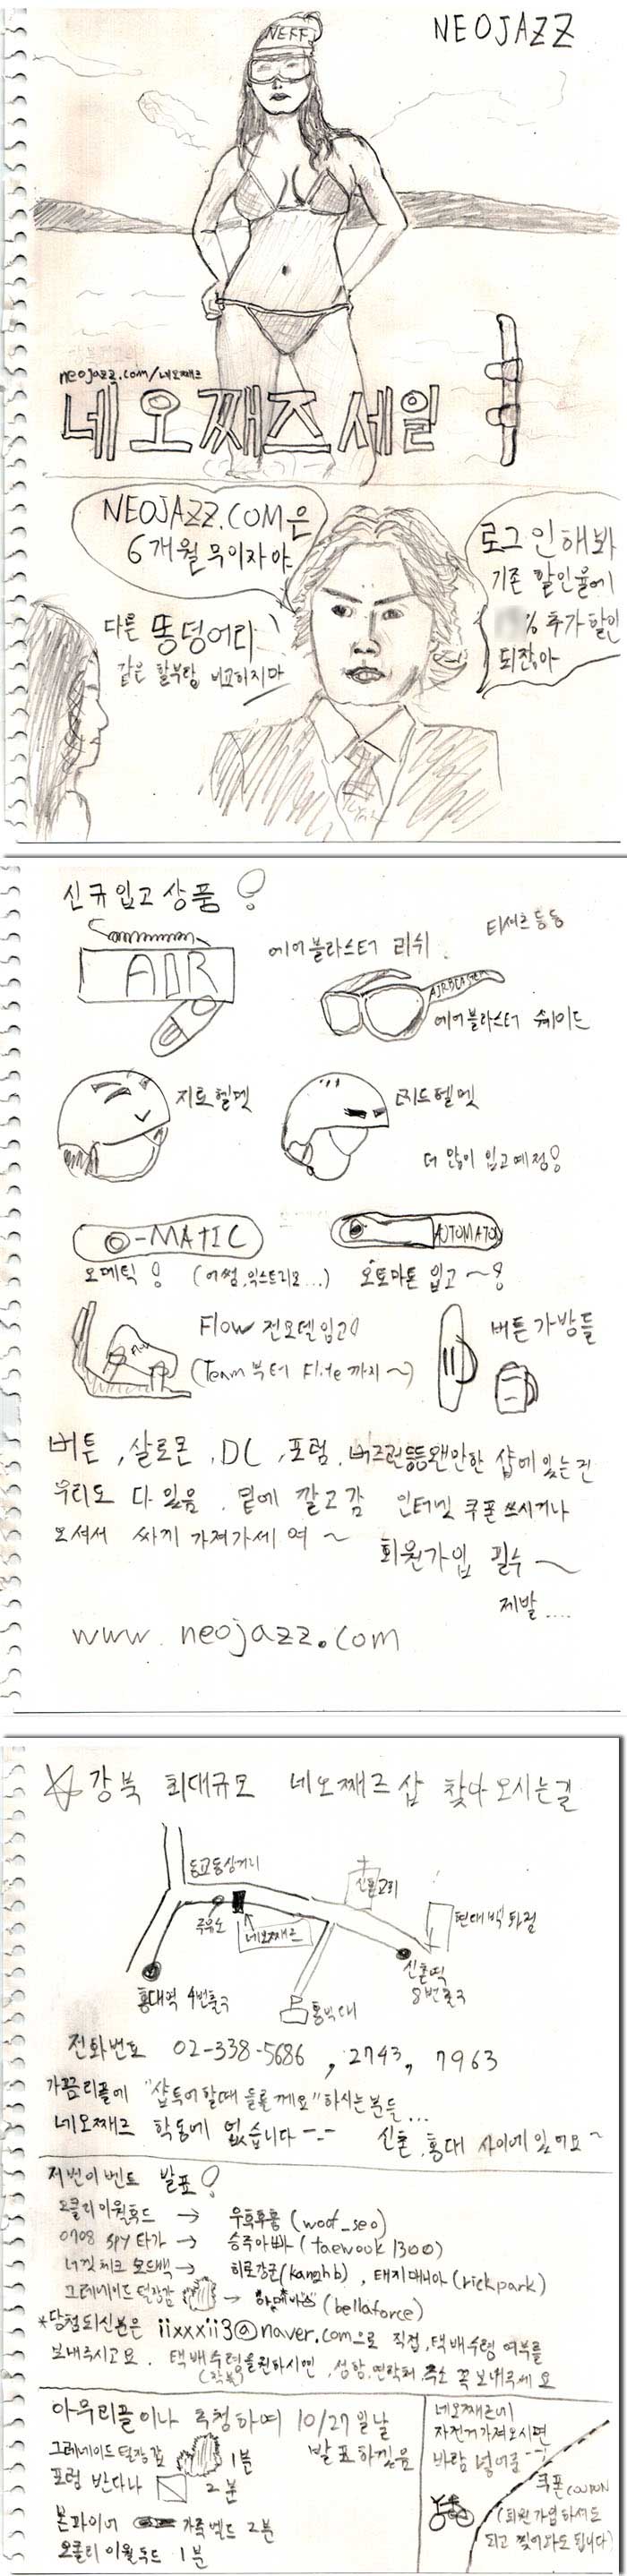 NEFF
NEOJAZZ
neojazz.com/네오째즈
네오째즈 세일
NEOJAZZ.COM은
6개월 무이자야
다른 똥덩어리
같은 할부랑 비교하지마
로그인해봐
기존 할인율에
% 추가 할인
되잖아
신규 입고 상품!
AIR
에어블라스터 리쉬
티셔츠 등등
AIRBLASTER
에어블라스터 쉐이드
지로헬멧
리드헬멧
더 많이 입고예정!
O-MATIC
AUTOMATON
오메틱! (어썸, 익스트리오...)
오토마톤 입고~!
Flow 전모델입고!
(Team 부터 Flite 까지~)
버튼가방들
버튼, 살로몬, DC, 포럼, 버즈런등등 왠만한 샵에 있는건
우리도 다 있음. 밑에 깔고감 인터넷 쿠폰 쓰시거나
오셔서 싸게 가져가세여~
회원가입 필수~
제발....
www.neojazz.com
강북 최대규모 네오째즈 샵 찾아오시는길
동교동삼거리
주유소
네오째즈
신촌교회
현대백화점
홍대역 4번출구
홍익대
신촌역
8번출구
전화번호 02-338-5686, 2743, 7963
가끔 리플에 "샵투어할때 들를께요" 하시는 분들...
네오째즈 학동에 없습니다 -.-
신촌, 홍대 사이에 있어요~
저번이벤트 발표!
오클리 이월후드 → 우후후훙 (woof_seo)
0708 SPY 타가 → 승주아빠 (taewook1300)
너낏체크 보드백 → 히로강군(kanghb), 태지매니아(rickpark)
그레네이드 털장갑 → (bellaforce)
*당첨되신분은 iixxxii3@naver.com으로 직접, 택배수령 여부를
보내주시고요. 택배수령을원하시면, 성함,연락처,주소 꼭 보내주세요
(착불)
아무리플이나 추첨하여 10/27일날
발표하겠음
그레네이드 털장갑 1분
포럼 반다나 2분
본파이어 가죽벨트 2분
오클리 이월후드 1분
네오째즈에
자전거가져오시면
바람 넣어줌 -.-
쿠폰 COUPON
(회원가입하셔도
되고 찢어와도 됩니다)